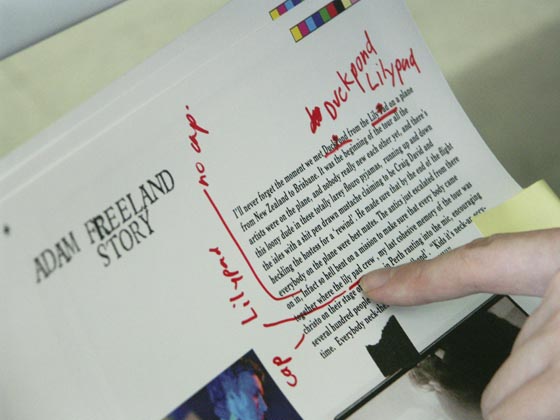 Duckpond
Lilypad
no ap.
Lilypad
cap
ADAM FREELAND
STORY
I'll never forget the moment we met Duckpond from the Lily Pad on a plane
from New Zealand to Brisbane. It was the beginning of the tour all the
artists were on the plane, and nobody really new each other yet, and there's
this loony dude in these totally larey flouro pyjamas, running up and down
the isles with a bit pen drawn mustache claiming to be Craig David and
heckling the hostess for a 'rewind'. He made sure that by the end of the flight
everybody on the plane were best mates. The antics just escalated from there
on in, Infact so hell bent on a mission to make sure that every body came
together where the lily pad crew, my last cohesive memory of the tour was
christo on their stage Perth ranting into the mic, encouraging
several hundred people
time. Everybody neck the